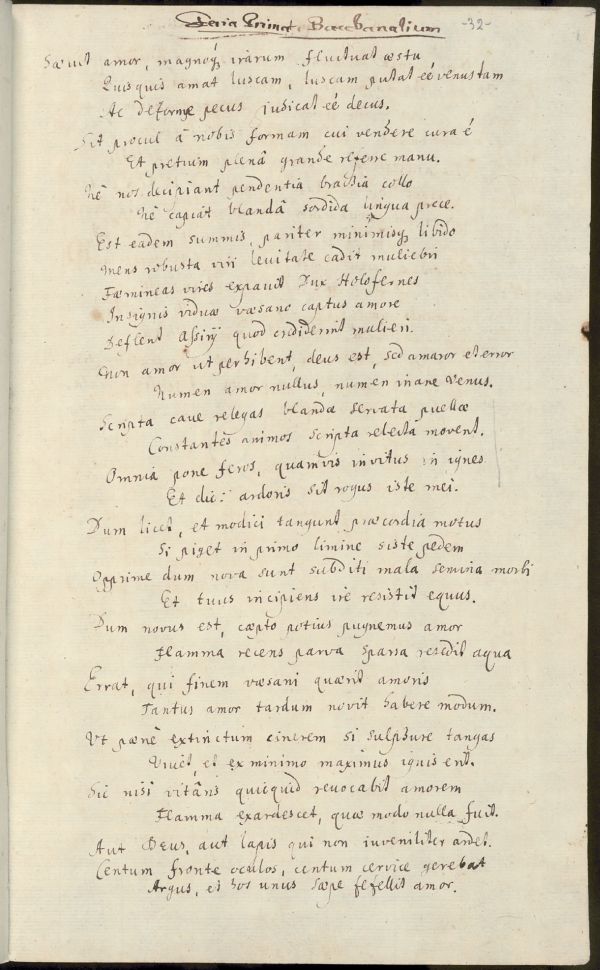 Feria Prima Bacchanalium -32-
Sæuit amor, magnoq́ irarum fluctuat æstu
Quisquis amat luscam, luscam putat eé venustam
Ac deforme pecus iudicat eé decus.
Sit procul â nobis formam cui vendere cura é
Et pretium plenâ grande referre manu.
Nê nos decipiant pendentia brachia collo
Nê capiat blandâ sordida lingua prece.
Est eadem summis pariter minimisq́ libido
Mens robusta viri levitate cadit muliebri
Fæmineas vires expavit Dux Holofernes
Insignis viduæ væsano captus amore
Deflent Assirÿ quod crdiderint mulieri.
Non amor ut perhibent, deus est, sed amaror et error
Numen amor nullus, numen inane Venus.
Scripta cave relegas blanda servata puellæ
Constantes animos scripta relecta movent.
Omnia pone feros, quamvis invitus in ignes
Et dic: ardoris sit rogus iste mei.
Dum licet, et modici tangunt præcordia motus
Si piget in primo limine siste pedem
Opprime dum nova sunt subditi mala semina morbi
Et tuus incipiens ire resistit equus.
Dum novus est, cæpto potius pugnemus amor
Flamma recens parva sparsa resedit aqua
Errat, qui finem væsani quærit amoris
Tantus amor tardum novit habere modum.
Ut pænê extinctum cinerem si sulphure tangas
Vivet, et ex minimo maximus ignis erit.
Sic nisi vitâris quicquid revocabit amorem
Flamma exardescet, quæ modo nulla fuit.
Aut Deus, aut lapis qui non iuveniliter ardet.
Centum fronte oculos, centum cervice gerebat
Argus, et hos unus sæpe fefellit amor.